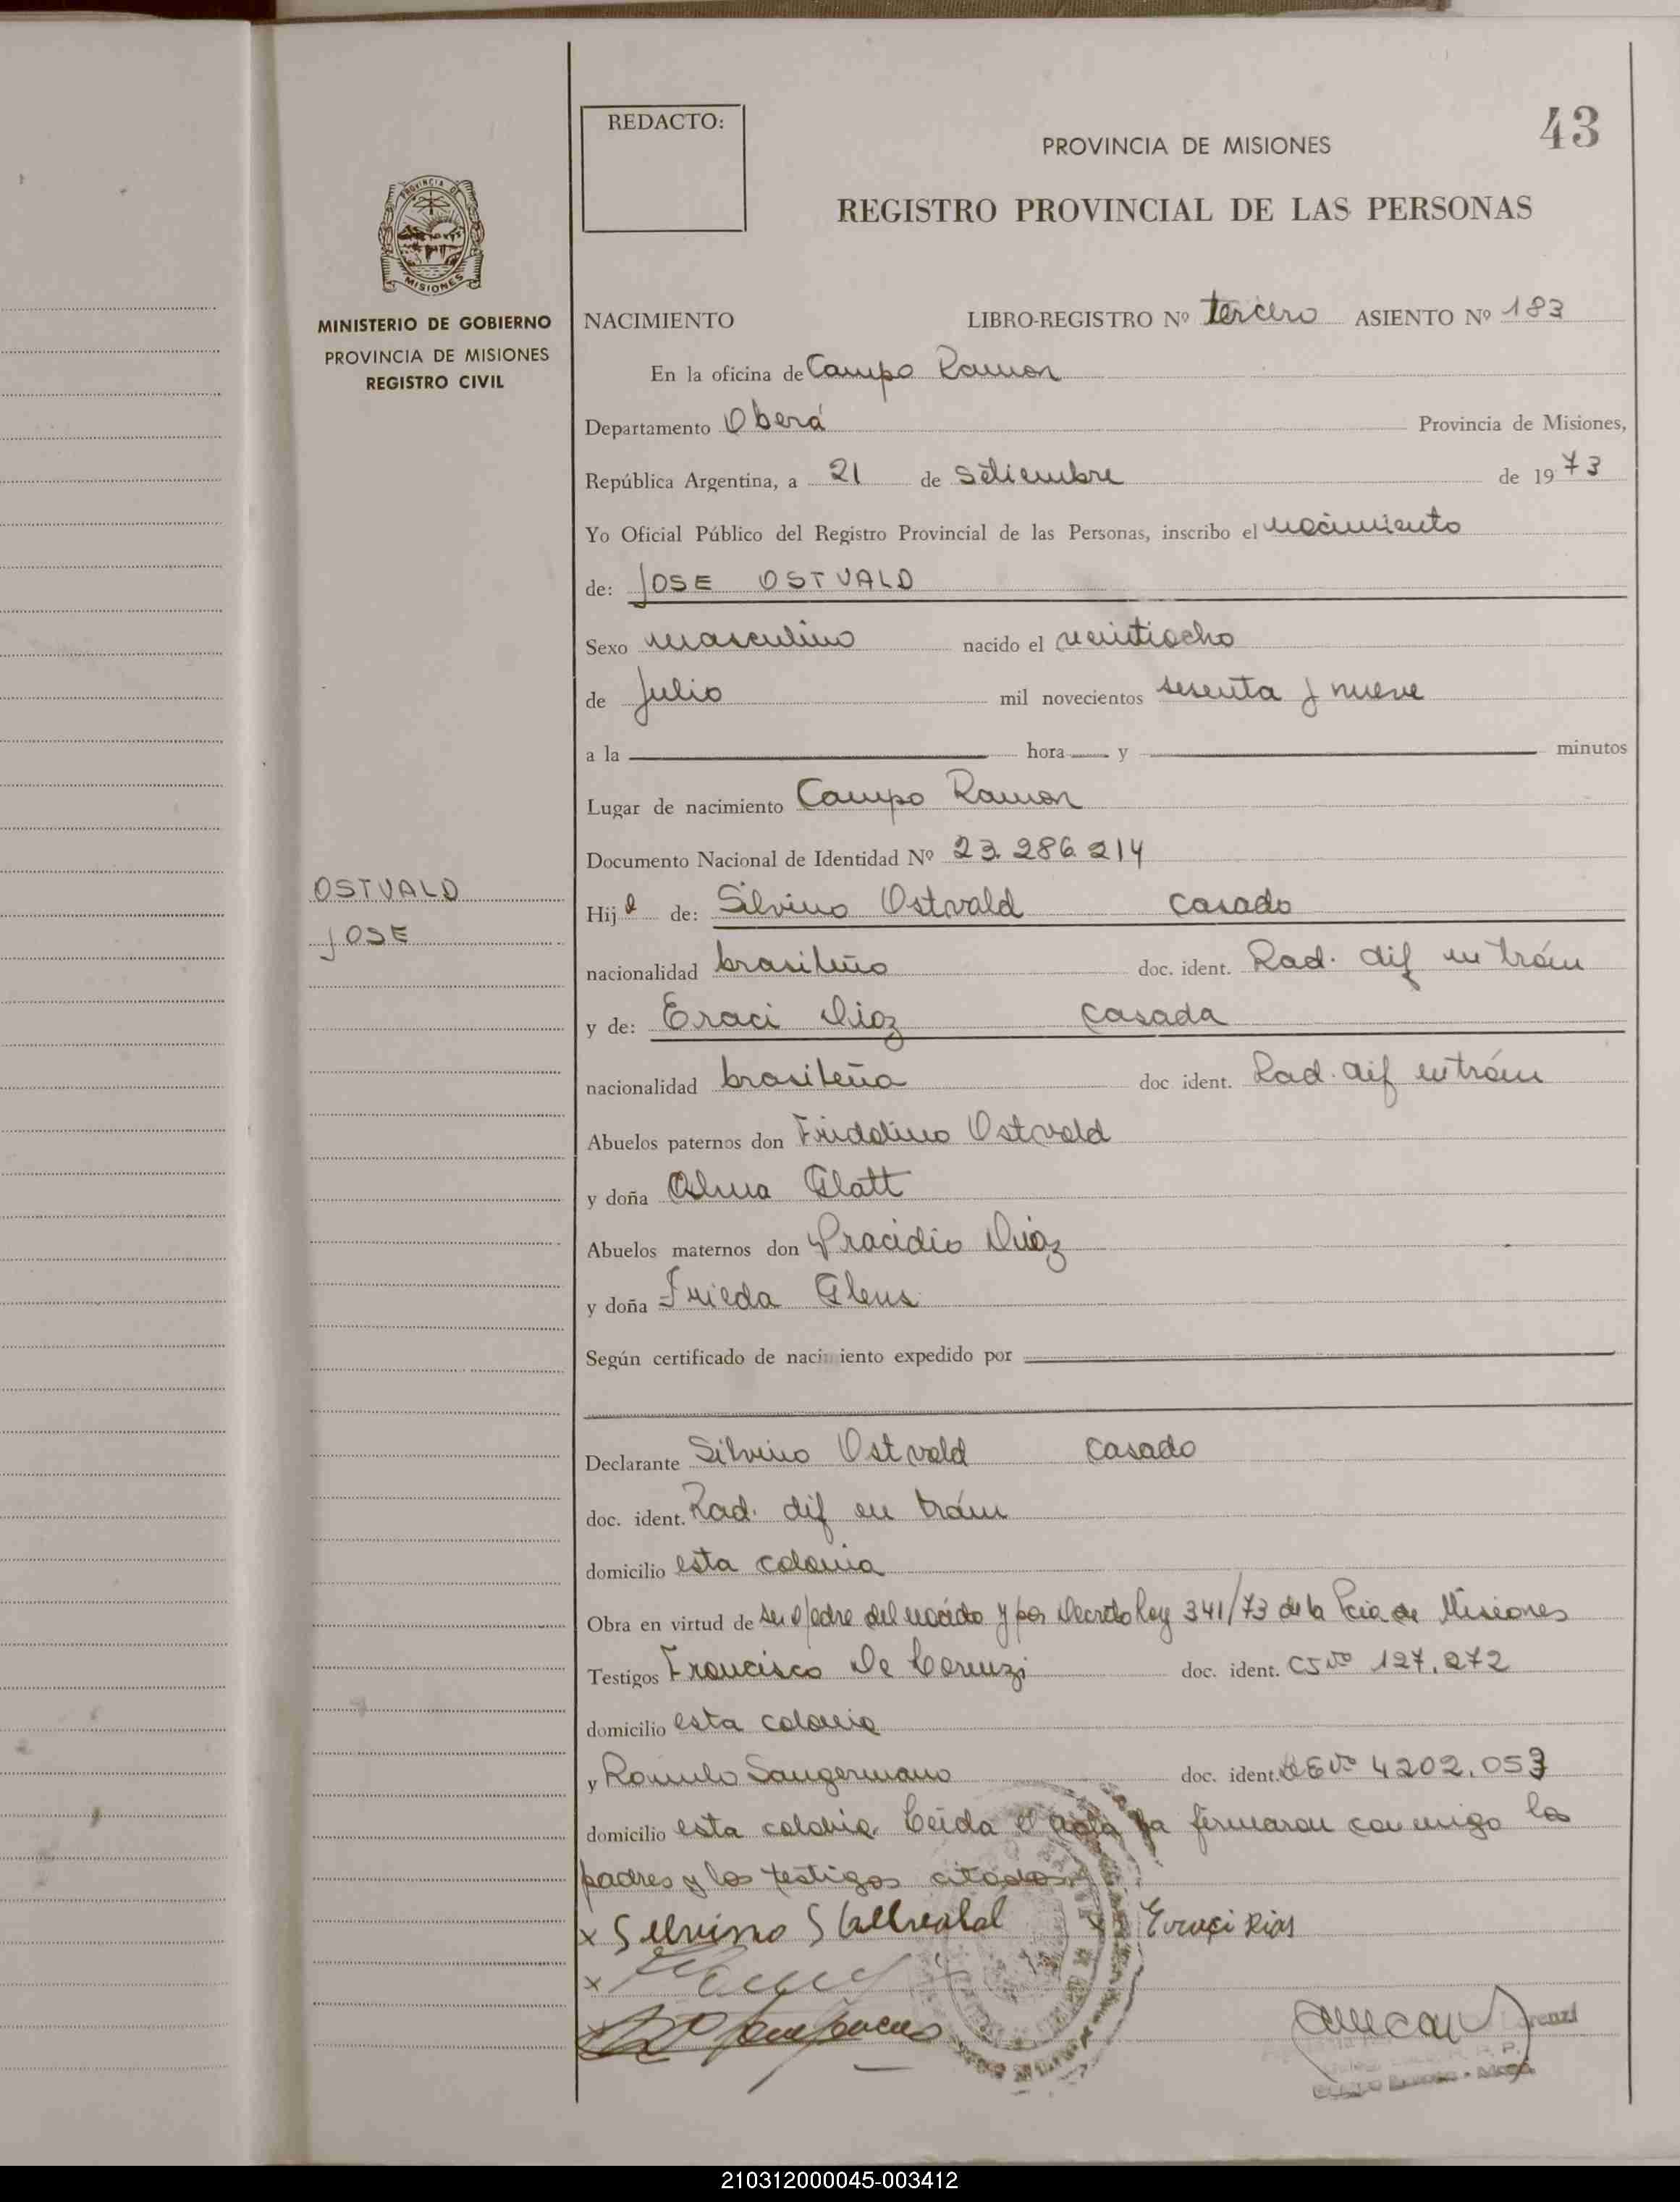 43
REDACTO:
PROVINCIA DE MISIONES
REGISTRO PROVINCIAL DE LAS PERSONAS
PROVINCIA DE
MISIONES
MINISTERIO DE GOBIERNO
PROVINCIA DE MISIONES
REGISTRO CIVIL
NACIMIENTO LIBRO-REGISTRO Nº tercero ASIENTO Nº 183
En la oficina de Campo Ramon
Departamento Oberá Provincia de Misiones,
República Argentina, a 21 de Setiembre de 1973
Yo Oficial Público del Registro Provincial de las Personas, inscribo el nacimiento
de: JOSE OSTVALD
Sexo masculino nacido el veintiocho
de Julio mil novecientos sesenta y nueve
a la hora y minutos
Lugar de nacimiento Campo Ramon
Documento Nacional de Identidad Nº 23.286.214
OSTVALD
JOSE
Hijo de: Silvino Ostvald casado
nacionalidad brasileño doc. ident. Rad. dif en trám
y de: Eraci Diaz casada
nacionalidad brasileña doc ident. Rad. dif en trám
Abuelos paternos don Fridolino Ostvald
y doña Alma Glatt
Abuelos maternos don Pracidio Diaz
y doña Frieda
Según certificado de nacimiento expedido por
Declarante Silvino Ostvald casado
doc. ident. Rad. dif en trám
domicilio esta colonia
Obra en virtud de ser padre del nacido y por Decreto Ley 341/73 de la Pcia de Misiones
Testigos Francisco De Lorenzi doc. ident. CI Nº 127.272
domicilio esta colonia
y Romulo Sangermano doc. ident. LE Nº 4202.053
domicilio esta colonia. Leida el acta la firmaron conmigo los
padres y los testigos citados
x Silvino x Eraci
x